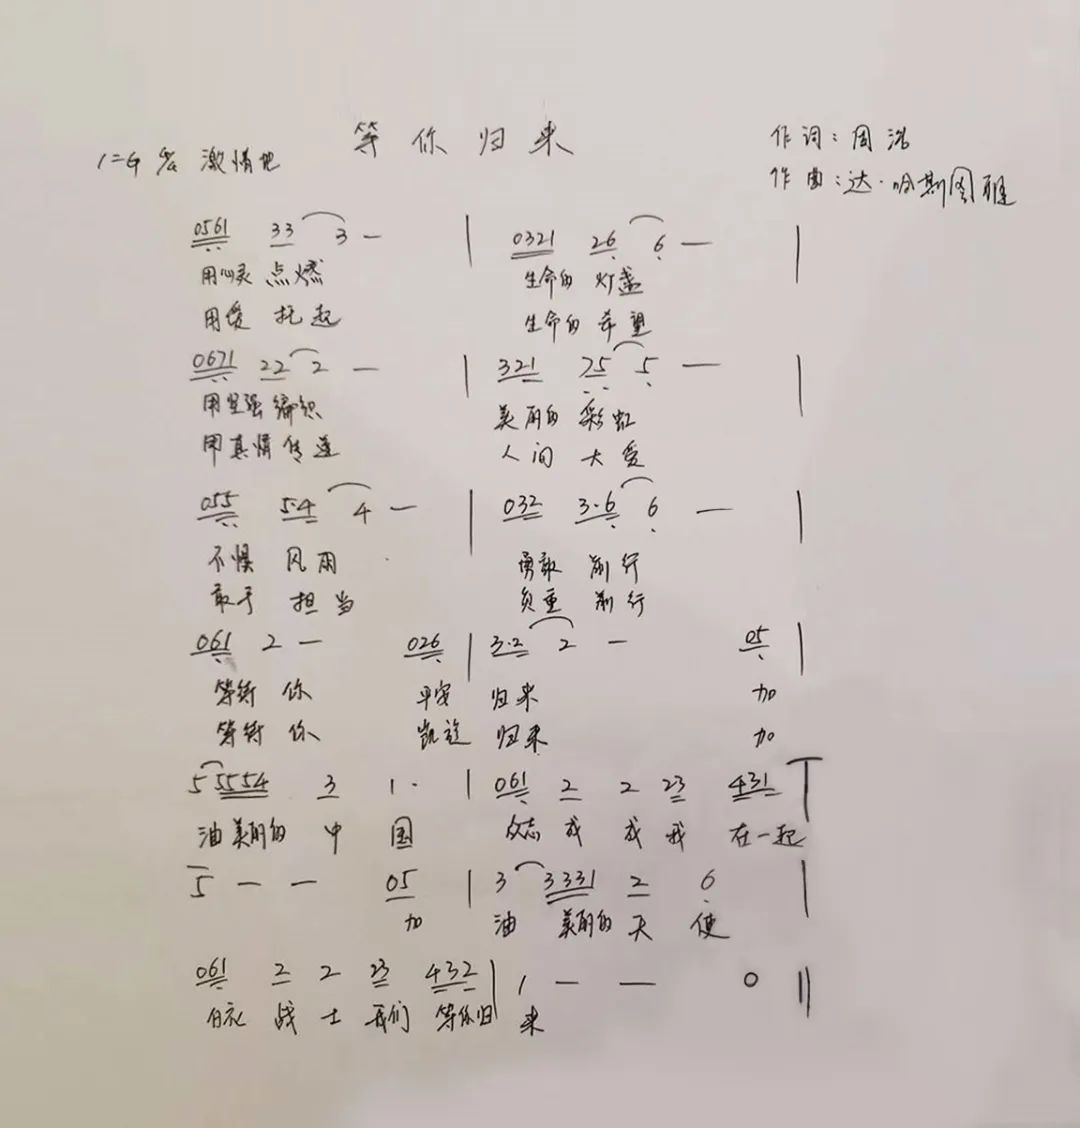 等你归来
1=G 激情地
作词：周浩
作曲：达·哈斯图雅
0561 33 3 — | 0321 26 6 — |
用心灵 点燃 生命的 灯盏
用爱 托起 生命的 希望
0671 22 2 — | 321 75 5 — |
用坚强 编织 美丽的 彩虹
用真情 传递 人间 大爱
055 5·4 4 — | 032 3·6 6 — |
不惧 风雨 勇敢 前行
敢于 担当 负重 前行
061 2 — 026 | 3·2 2 — 05 |
等待 你 平安 归来 加
等待 你 凯旋 归来 加
5 5554 3 1· | 061 2 2 23 431 |
油 美丽的 中 国 众志 成 成 我 在一起
5 — — 05 | 3 3331 2 6 |
加 油 美丽的 天 使
061 2 2 23 432 | 1 — — 0 ‖
白衣 战 士 我们 等你归 来